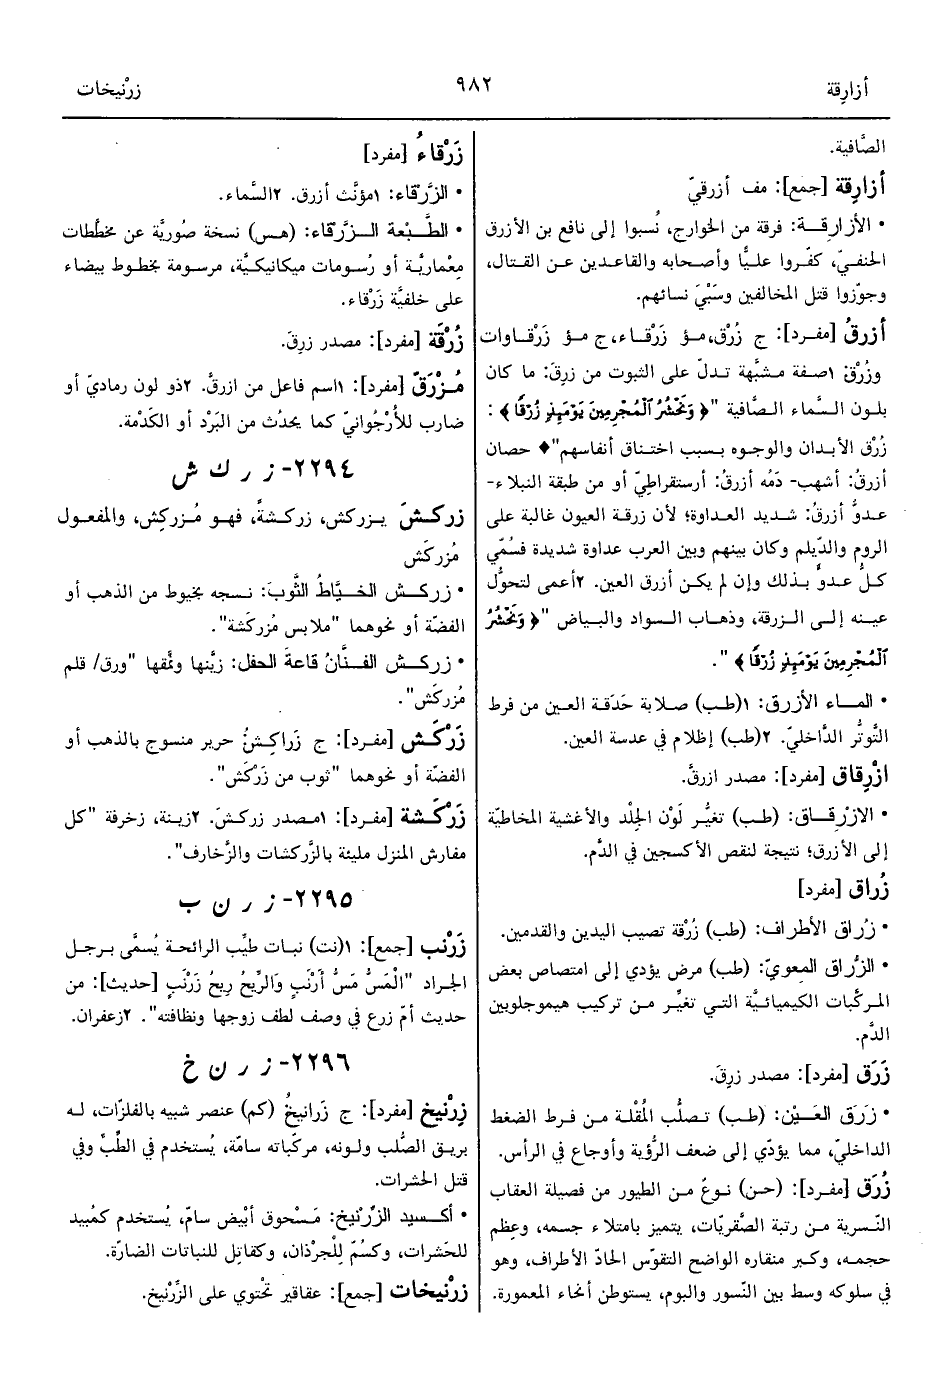 أزارِقة
٩٨٢
زِرْنيخات
الصَّافية.
أزارِقة [جمع]: مف أزرقيّ
• الأزارِقـــة: فرقة من الخوارج، نُسبوا إلى نافع بن الأزرق
الحنفيّ، كفّروا عليًّا وأصحابه والقاعدين عـن القـتال،
وجوّزوا قتل المخالفين وسَبْيَ نسائهم.
أزرقُ [مفـرد]: ج زُرْق، مـؤ زَرْقــاء، ج مـؤ زَرْقــاوات
وزُرْق: ١صـفة مشـبَّهة تـدلّ على الثبوت من زرِقَ: ما كان
بلـون السَّـماء الصَّافية "﴿ وَنَحْشُرُ الْمُجْرِمِينَ يَوْمَئِذٍ زُرْقًا ﴾ :
زُرْق الأبـدان والوجـوه بـسبب اخـتناق أنفاسهم"♦ حصان
أزرقُ: أشهب- دَمُه أزرقُ: أرستقراطيّ أو من طبقة النبلاء-
عـدوٌّ أزرقُ: شـديد العداوة؛ لأن زرقـة العيون غالبة على
الروم والدّيلم وكان بينهم وبين العرب عداوة شديدة فسُمّي
كـلُّ عـدوٍّ بـذلك وإن لم يكـن أزرق العين. ٢أعمى لتحوُّل
عيـنه إلـى الـزرقة، وذهـاب الـسواد والبـياض "﴿ وَنَحْشُرُ
الْمُجْرِمِينَ يَوْمَئِذٍ زُرْقًا ﴾ ".
• المـــاء الأزرق: ١(طب) صـلابة حَدَقـة العـين من فرط
التَّوتُّر الدَّاخليّ. ٢(طب) إظلام في عدسة العين.
ازْرِقاق [مفرد]: مصدر ازرقَّ.
• الازْرِقــاق: (طـب) تغيُّـر لَوْن الجِلْد والأغشية المخاطيَّة
إلى الأزرق؛ نتيجة لنقص الأكسجين في الدَّم.
زُراق [مفرد]
• زُراق الأطراف: (طب) زُرْقة تصيب اليدين والقدمين.
• الزُّراق المعويّ: (طب) مرض يؤدي إلى امتصاص بعض
المـركَّبات الكيميائـيَّة التـي تغيِّـر مـن تركيب هيموجلوبين
الدَّم.
زَرَق [مفرد]: مصدر زرِقَ.
• زَرَق العَــيْن: (طـب) تـصلُّب المُقْلـة مـن فـرط الضغط
الداخليّ، مما يؤدّي إلى ضعف الرُّؤية وأوجاع في الرأس.
زُرَق [مفرد]: (حـن) نـوعٌ مـن الطيور من فصيلة العقاب
النّسرية مـن رتبة الصَّقريّات، يتميز بامتلاء جسمه، وعِظم
حجمـه، وكـبر منقاره الواضح التقوّس الحادّ الأطراف، وهو
في سلوكه وسط بين النّسور والبوم، يستوطن أنحاء المعمورة.
زَرْقاءُ [مفرد]
• الزَّرْقاء: ١مؤنَّث أزرق. ٢السَّماء.
• الطَّـبْعة الـزَّرقاء: (هـس) نسخة صُوريَّة عن مخطَّطات
مِعْماريَّة أو رُسومات ميكانيكيَّة، مرسومة بخطوط بيضاء
على خلفيَّة زَرْقاء.
زُرْقَة [مفرد]: مصدر زرِقَ.
مُـزْرَقّ [مفرد]: ١اسم فاعل من ازرقَّ. ٢ذو لون رماديّ أو
ضارب للأُرْجُوانيّ كما يحدُث من البَرْد أو الكَدْمة.
٢٢٩٤- ز ر ك ش
زركـشَ يـزركش، زركشةً، فهـو مُـزركِش، والمفعول
مُزركَش
• زركـش الخـيَّاطُ الثَّوبَ: نـسجه بخيوط من الذهب أو
الفضّة أو نحوهما "ملابس مُزركَشة".
• زركـش الفـنَّانُ قاعةَ الحفل: زيَّنها ونمَّقها "ورق/ قلم
مُزركَش".
زَرْكَـش [مفـرد]: ج زَراكِـشُ حرير منسوج بالذهب أو
الفضّة أو نحوهما "ثوب من زَرْكَش".
زَرْكَشة [مفـرد]: ١مـصدر زركـشَ. ٢زيـنة، زخرفة "كل
مفارش المنزل مليئة بالزَّركشات والزَّخارف".
٢٢٩٥- ز ر ن ب
زَرْنَب [جمع]: ١(نت) نبات طيِّب الرائحـة يُسمَّى بـرجل
الجراد "الْمَسُّ مَسُّ أَرْنَبٍ وَالرِّيحُ رِيحُ زَرْنَبٍ [حديث]: من
حديث أمّ زرع في وصف لطف زوجها ونظافته". ٢زعفران.
٢٢٩٦- ز ر ن خ
زِرْنيخ [مفرد]: ج زَرانيخُ (كم) عنصر شبيه بالفلزّات، لـه
بريـق الصُّلب ولـونه، مركّباته سامّة، يُستخدم في الطّبّ وفي
قتل الحشرات.
• أكـسيد الزِّرْنيخ: مَـسْحوق أبْيض سـامّ، يُستخدم كمُبيد
للحَشرات، وكسُمّ لِلْجرْذان، وكقاتِل للنباتات الضارّة.
زِرْنيخات [جمع]: عقاقير تحْتوي على الزِّرْنيخ.